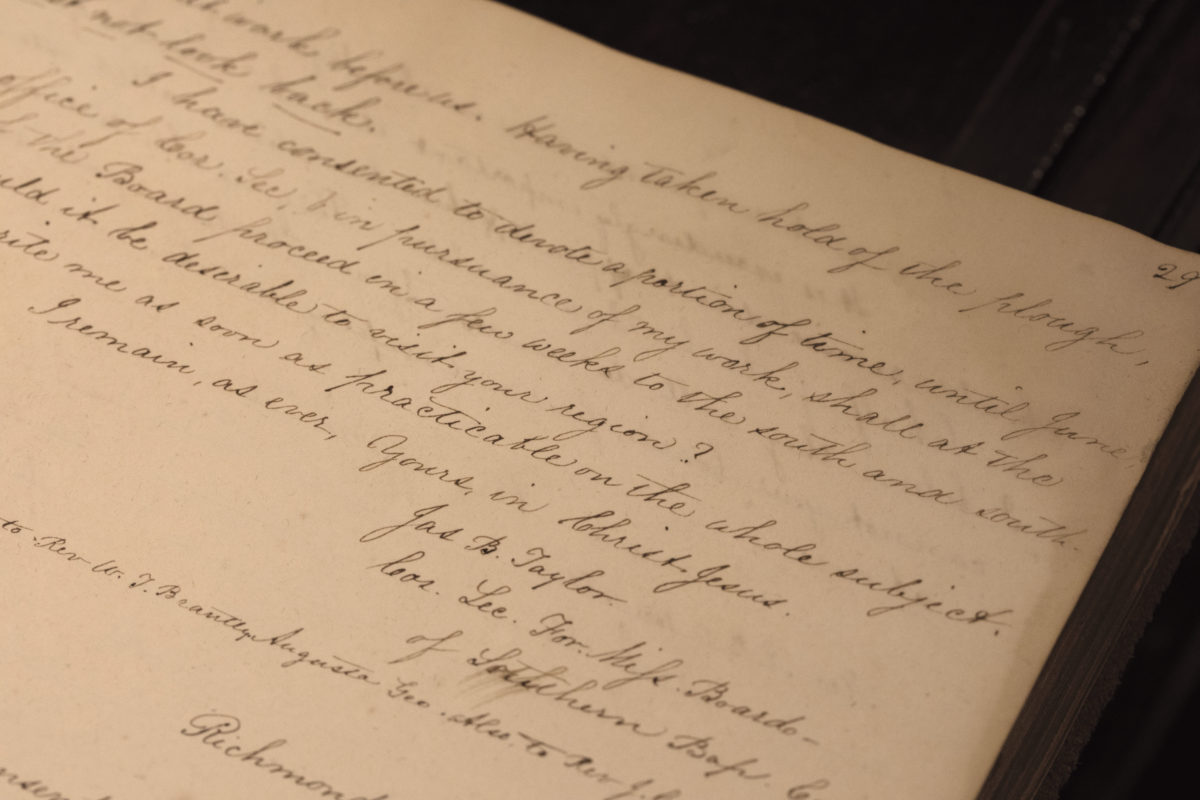 29
work before us. Having taken hold of the plough,
not look back.
I have consented to devote a portion of time, until June,
office of Cor. Sec, & in pursuance of my work, shall at the
the Board proceed in a few weeks to the south and south-
it be desirable to visit your region?
me as soon as practicable on the whole subject.
I remain, as ever,
Yours, in Christ Jesus.
Jas B. Taylor.
Cor. Sec. For. Miss. Board-
of Southern Bap. C
to Rev W. T. Brantley, Augusta Geo. Also to Rev J.
Richmond